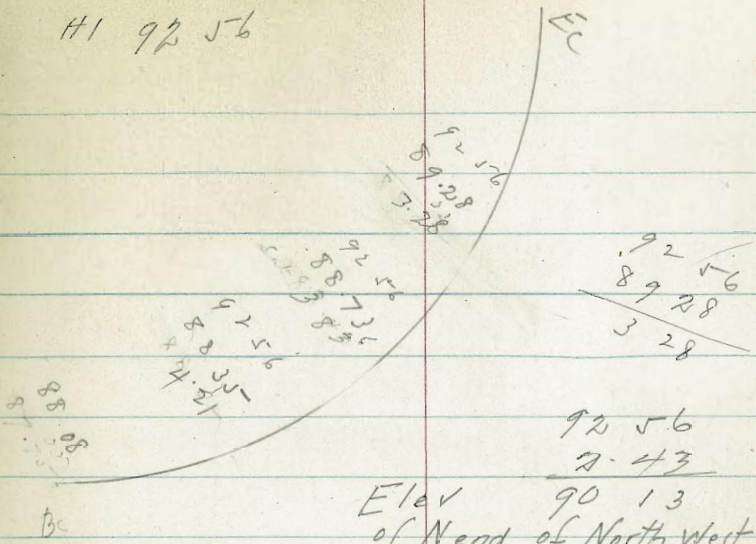 HI 92 56
EC
92 56
89.28
3.28
92 56
88.735
3 83
92 56
88 35
4.21
88 08
BC
92 56
89 28
3 28
92 56
2.43
90 13
Elev
of N end of North West